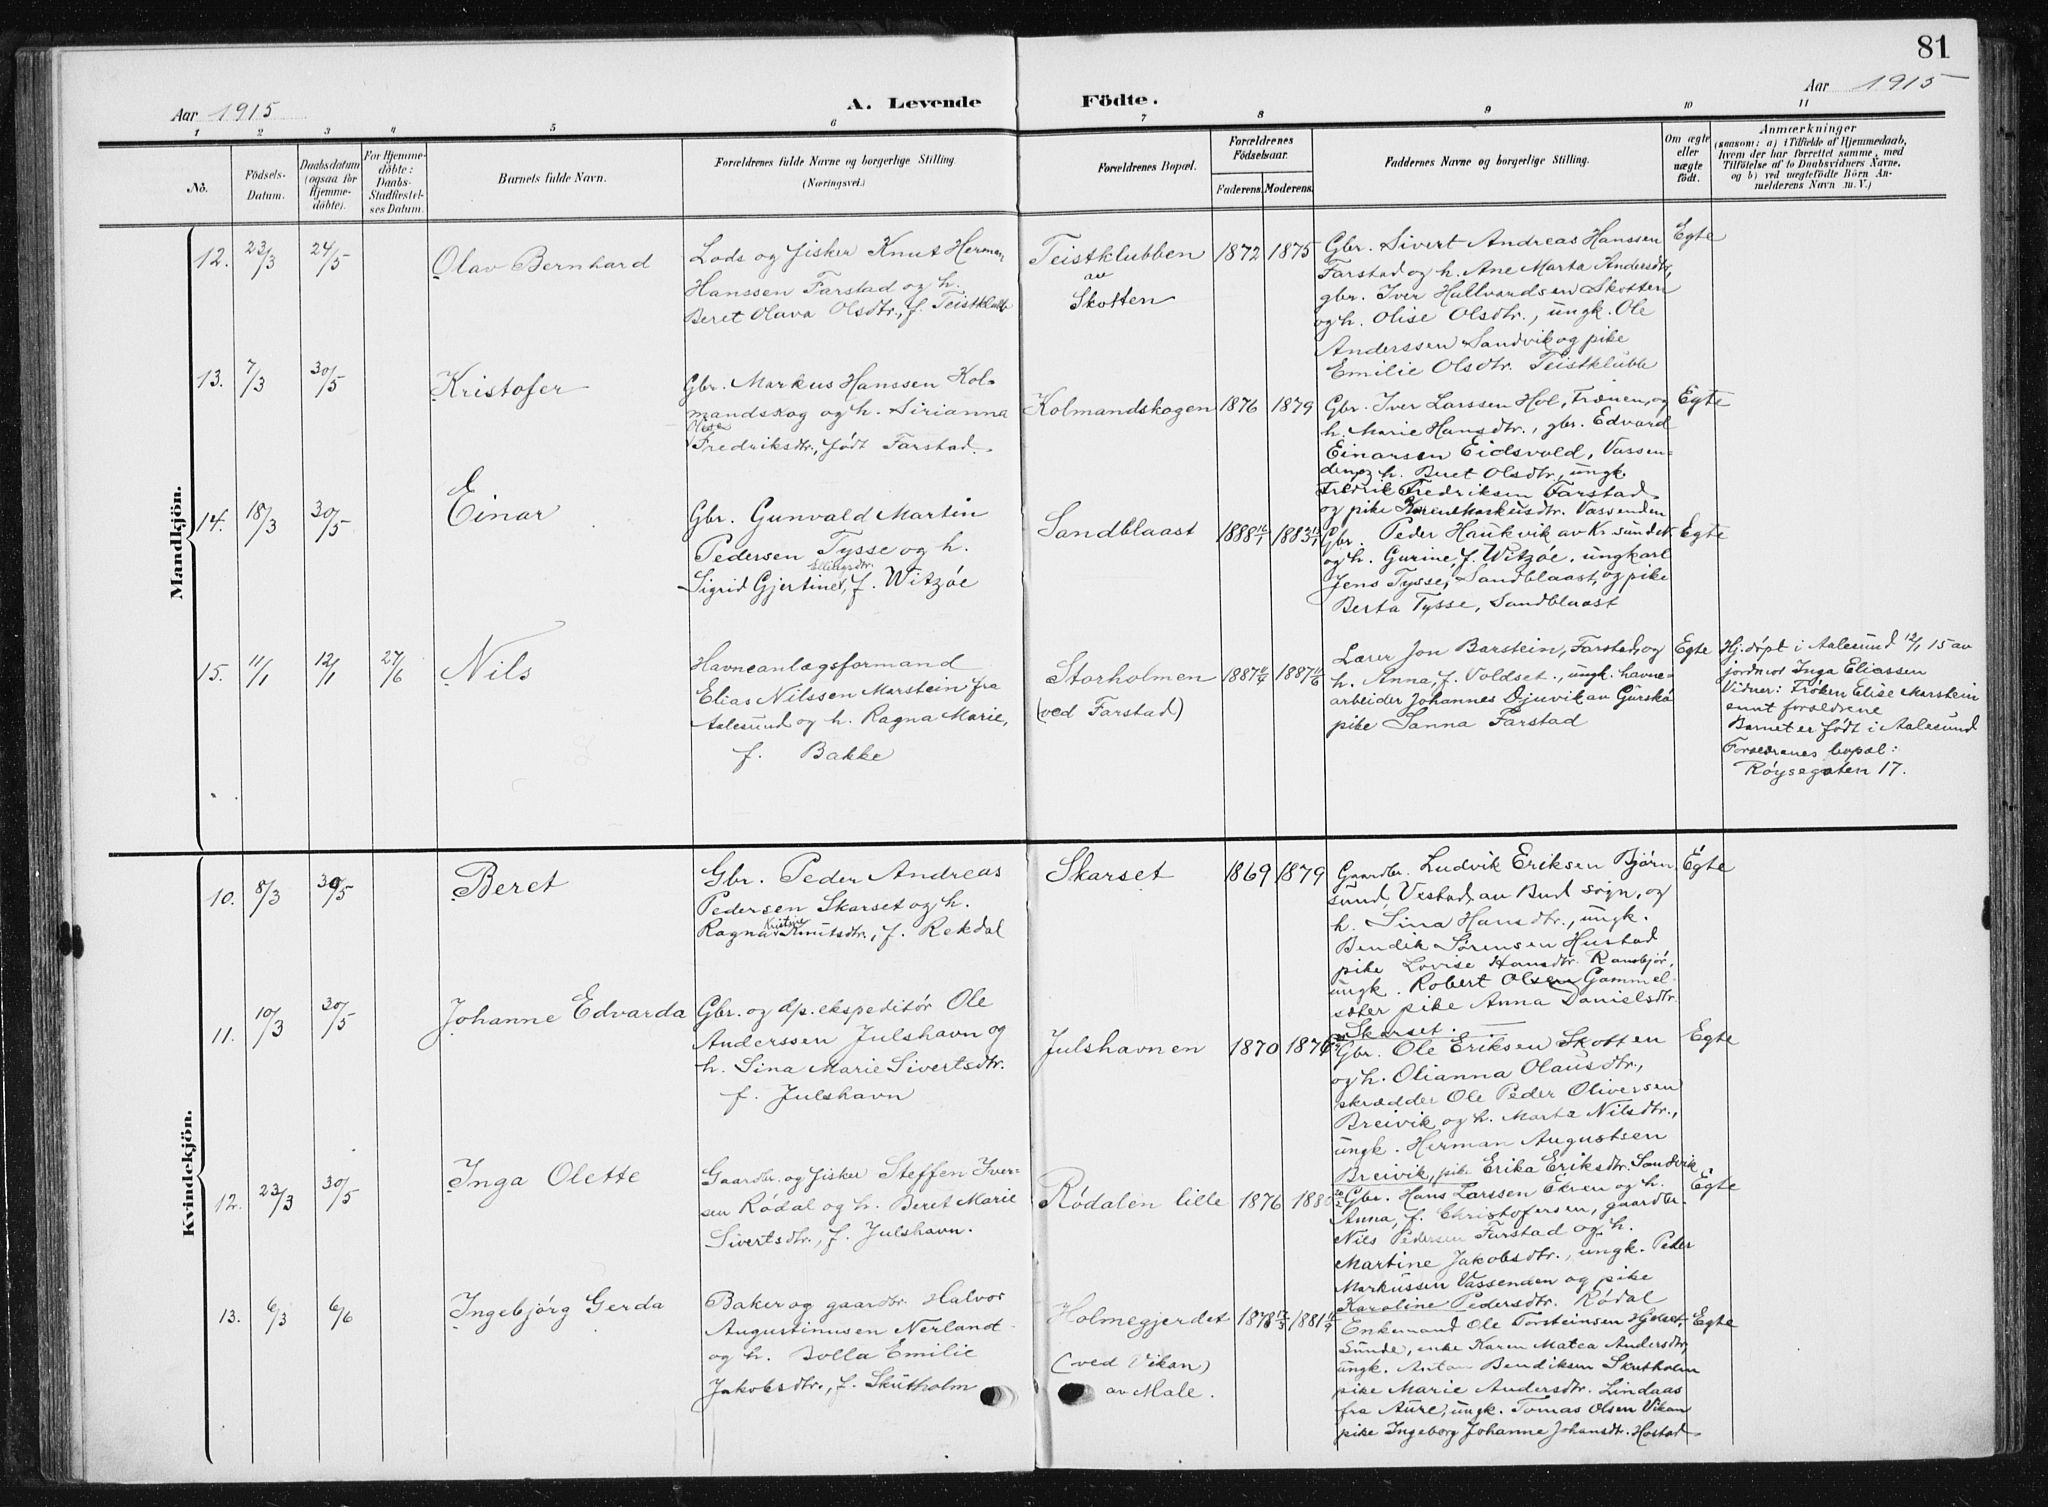 81
Aar 1915
A. Levende Födte.
Aar 1915
1 2 3 4 5 6 7 8 9 10 11
No.
Födsels-
Datum.
Daabsdatum
(ogsaa for
Hjemme-
döbte).
For Hjemme-
döbte:
Daabs-
Stadfæstel-
ses Datum.
Barnets fulde Navn.
Forældrenes fulde Navne og borgerlige Stilling
(Næringsvei.)
Forældrenes Bopæl.
Forældrenes
Födselsaar.
Faderens. Moderens.
Faddernes Navne og borgerlige Stilling.
Om ægte
eller
uægte
födt.
Anmærkninger
(saasom: a) i Tilfælde af Hjemmedaab,
hvem der har forrettet samme, med
Tilföielse af to Daabsvidners Navne,
og b) ved uægtefödte Börn An-
melderens Navn m. V.)
Mandkjön.
12. 23/3 24/5
Olav Bernhard
Lods og fisker Knut Herman
Hanssen Farstad og h.
Beret Olava Olsdtr., f. Teistklubb
Teistklubben
av
Skotten
1872 1875
Gbr. Sivert Andreas Hanssen
Farstad og h. Ane Marta Andersdtr,
gbr. Iver Hallvardsen Skotten
og h. Olise Olsdtr., ungk. Ole
Anderssen Sandvik og pike
Emilie Olsdtr. Teistklubb
Egte
13. 7/3 30/5
Kristofer
Gbr. Markus Hanssen Kol-
mandskog og h. Sirianna
Olise
Fredriksdtr., født Farstad.
Kolmandskogen
1876 1879
Gbr. Iver Larssen Hol, Frænen, og
h. Marie Hansdtr., gbr. Edvard
Einarsen Eidsvold, Vassen-
den og h. Beret Olsdtr., ungk.
Fredrik Fredriksen Farstad
og pike Karen Markusdtr. Vassenden
Egte
14. 18/3 30/5
Einar
Gbr. Gunvald Martin
Pedersen Tysse og h.
Ellingsdtr.
Sigrid Gjertine, f. Witzøe
Sandblaast
1888 1883
Gbr. Peder Haukvik av Kr.sund N.
og h. Gurine, f. Witzøe, ungkarl
Jens Tysse, Sandblaast, og pike
Berta Tysse, Sandblaast
Egte
15. 11/1 12/1 27/6
Nils
Havneanlægsformand
Elias Nilssen Marstein fra
Aalesund og h. Ragna Marie,
f. Bakke
Storholmen
(ved Farstad)
1887 1887
Lærer Jon Barstein, Farstad, og
h. Anna, f. Voldset., ungk. havne-
arbeider Johannes Djuvik av Gurskø
pike Sanna Farstad
Egte
Hj.døpt i Aalesund 12/1 15 av
jordmor Inga Eliassen
Vidner: Frøken Elise Marstein
samt forældrene
Barnet er født i Aalesund
Forældrenes bopæl:
Røysegaten 17.
Kvindekjön.
10. 8/3 30/5
Beret
Gbr. Peder Andreas
Pedersen Skarset og h.
Kristine
Ragna Knutsdtr., f. Rekdal
Skarset
1869 1879
Gaardbr. Ludvik Eriksen Bjørn-
sund, Vestad, av Bud sogn, og
h. Sina Hansdtr., ungk.
Bendik Sørensen Hustad
pike Lovise Hansdtr. Ransbjør,
ungk. Robert Olsen Gammel-
sæter pike Anna Danielsdtr.
Skarset.
Egte
11. 10/3 30/5
Johanne Edvarda
Gbr. og dp.ekspeditør Ole
Anderssen Julshavn og
h. Sina Marie Sivertsdtr.
f. Julshavn
Julshavnen
1870 1876
Gbr. Ole Eriksen Skotten
og h. Olianna Olausdtr.,
skrædder Ole Peder Oliversen
Breivik og h. Marta Nilsdtr.,
ungk. Herman Augustsen
Breivik, pike Erika Eriksdtr. Sandvik
Egte
12. 23/3 30/5
Inga Olette
Gaardbr. og fisker Steffen Iver-
sen Rødal og h. Beret Marie
Sivertsdtr., f. Julshavn.
Rødalen lille
1876 1880
Gbr. Hans Larssen Ekren og h.
Anna, f. Christofersen, gaardbr.
Nils Pedersen Farstad og h.
Martine Jakobsdtr., ungk. Peder
Markussen Vassenden og pike
Karoline Pedersdtr. Rødal
Egte
13. 6/3 6/6
Ingebjørg Gerda
Baker og gaardbr. Halvor
Augustinusen Nerland
og h. Bolla Emilie
Jakobsdtr., f. Skutholm
Holmegjerdet
(ved Vikan)
av Male.
1878 1881
Enkemand Ole Torsteinsen Hjelset-
Sunde, enke Karen Matea Andersdtr,
ungk. Anton Bendiksen Skutholm
pike Marie Andersdtr. Lindaas
fra Aure, ungk. Tomas Olsen Vikan
pike Ingeborg Johanne Johansdtr. Hostad
Egte